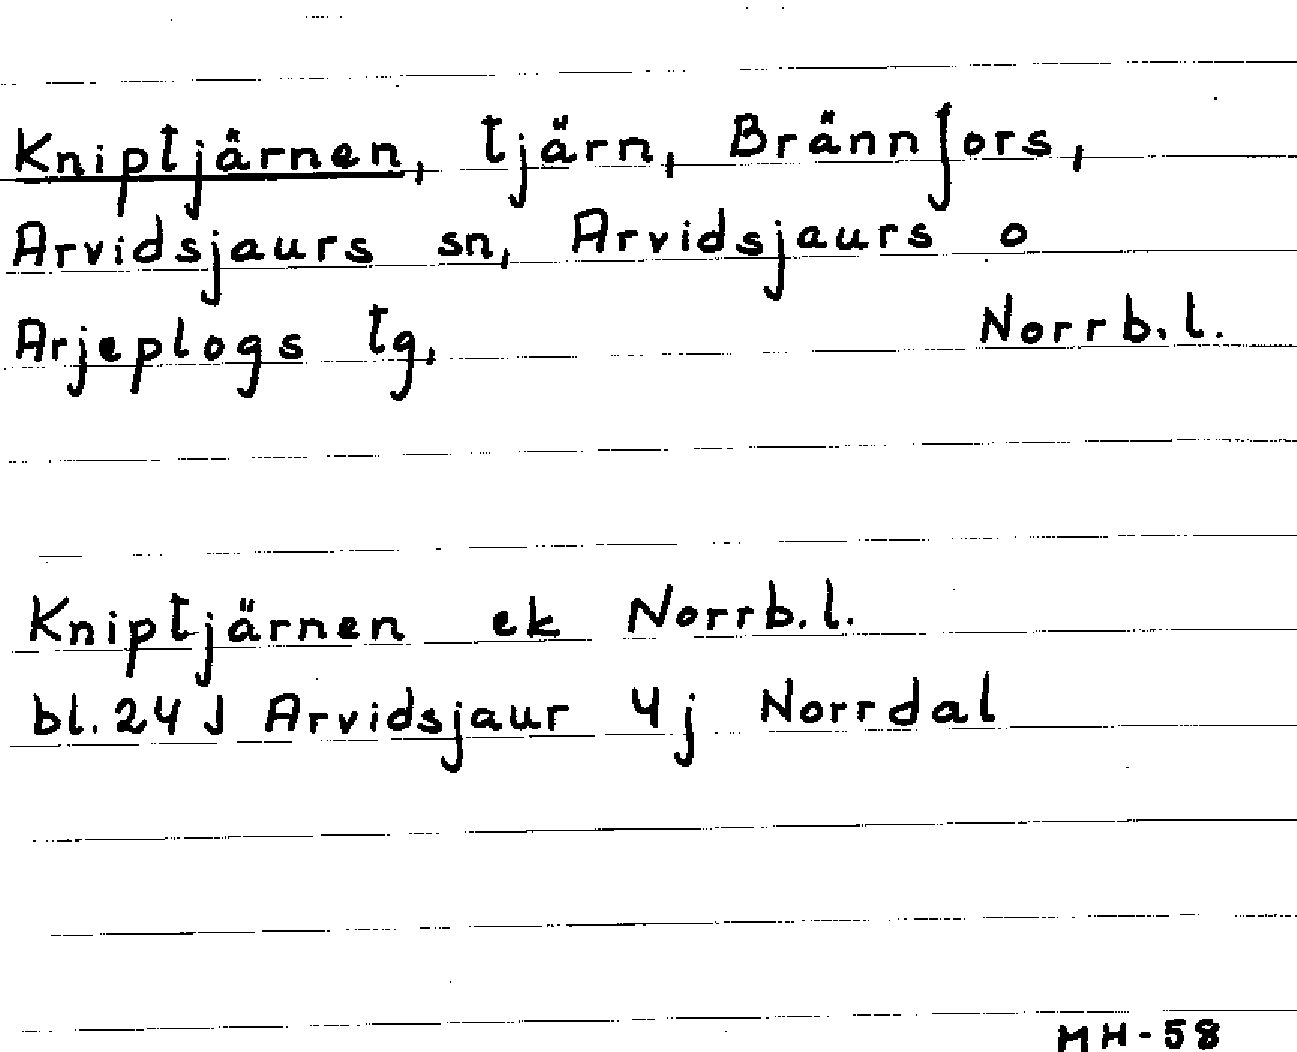 Kniptjärnen, tjärn, Brännfors,
Arvidsjaurs sn, Arvidsjaurs o
Arjeplogs tg, Norrb.l.
Kniptjärnen ek Norrb.l.
bl. 24 J Arvidsjaur 4j Norrdal
MH-58